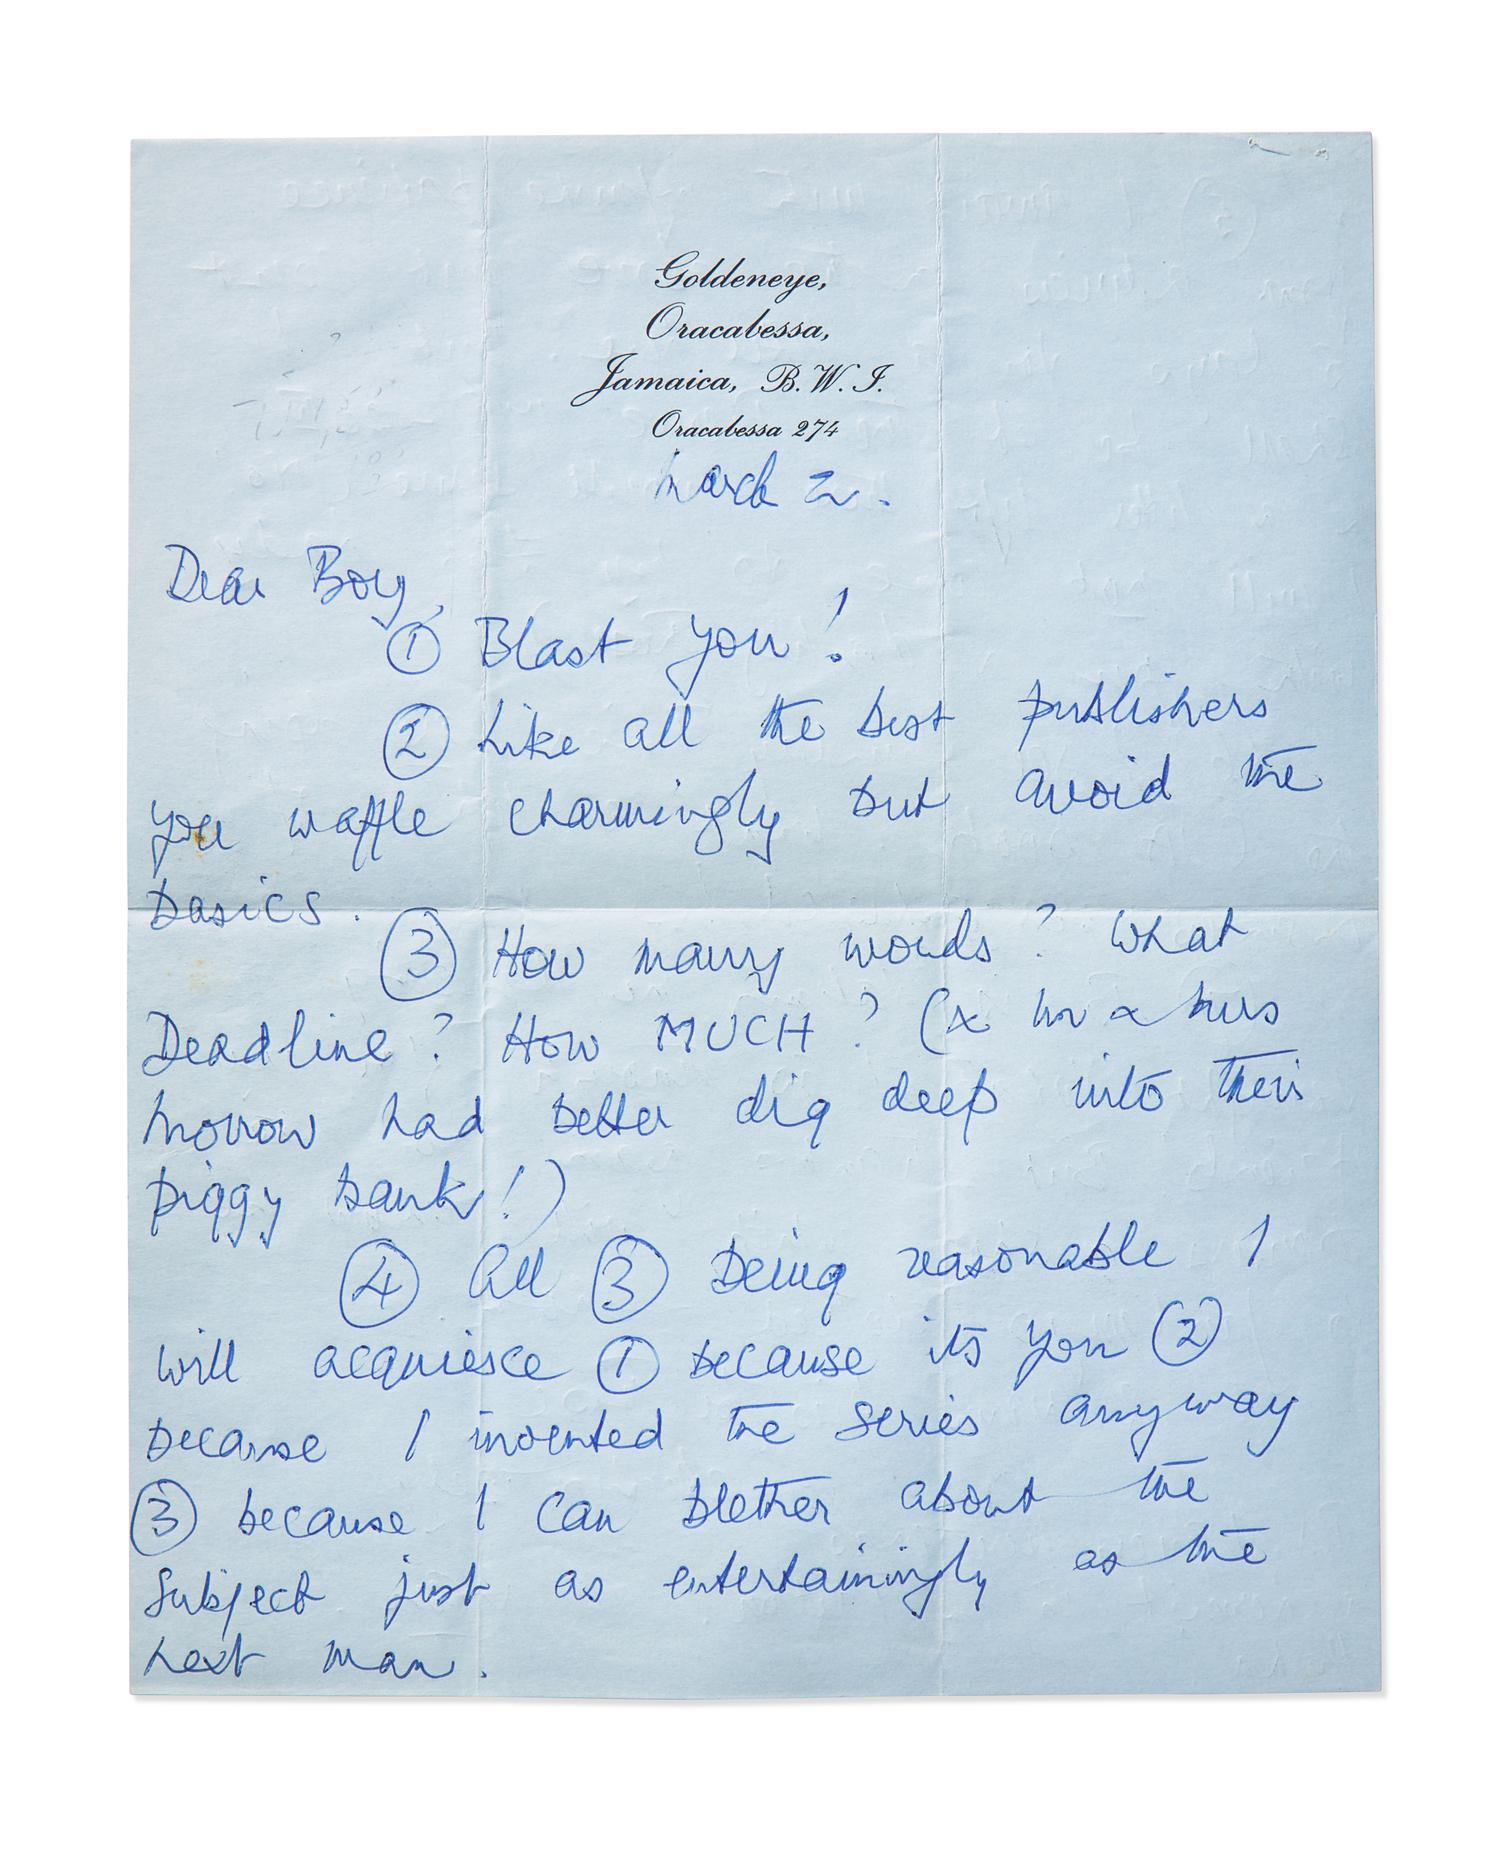 Goldeneye,
Oracabessa,
Jamaica, B.W.I.
Oracabessa 274
March 2.
Dear Boy,
① Blast you!
② Like all the best publishers
you waffle charmingly but avoid the
basics.
③ How many words? What
Deadline? How MUCH? (& Mr & Mrs
Morrow had better dig deep into their
piggy bank!)
④ All ③ being reasonable I
will acquiesce ① because its you ②
because I invented the series anyway
③ because I can blether about the
subject just as entertainingly as the
next man.